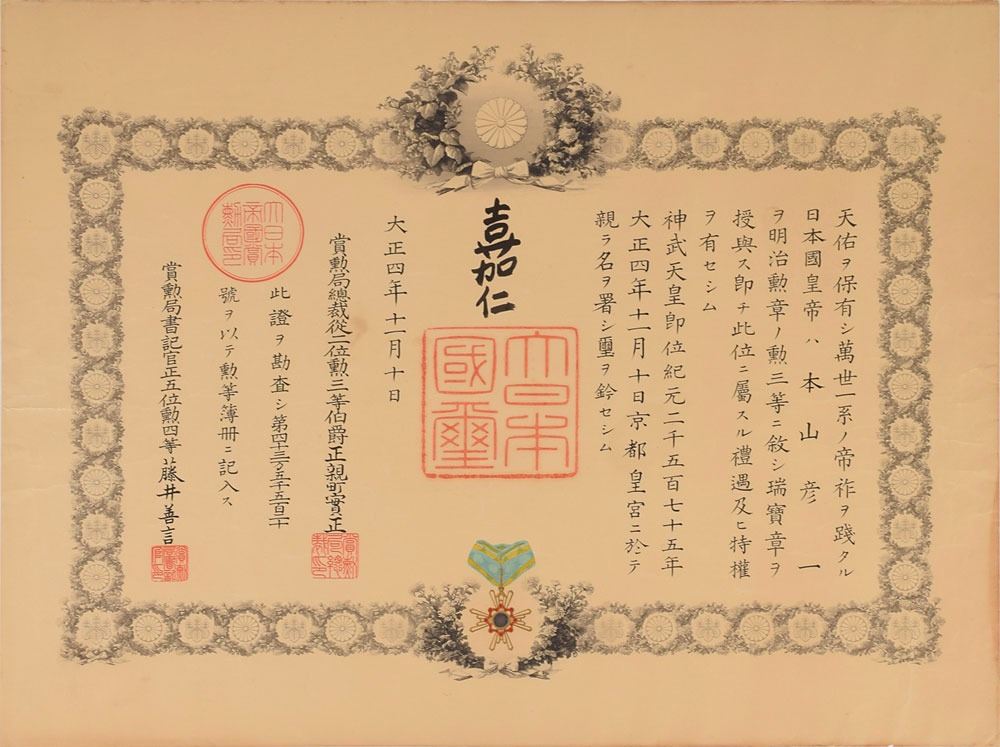 天佑ヲ保有シ萬世一系ノ帝祚ヲ踐タル
日本國皇帝ハ本山彦一
ヲ明治勲章ノ勲三等ニ敘シ瑞寶章ヲ
授與ス即チ此位ニ屬スル禮遇及ヒ特權
ヲ有セシム
神武天皇即位紀元二千五百七十五年
大正四年十一月十日京都皇宮ニ於テ
親ラ名ヲ署シ璽ヲ鈐セシム
嘉仁
大日本國璽
大正四年十一月十日
賞勲局總裁從二位勲三等伯爵正親町實正
此證ヲ勘査シ第四十三万五千五百二十
號ヲ以テ勲等簿冊ニ記入ス
大日本帝國賞勲局印
賞勲局書記官正五位勲四等藤井善言